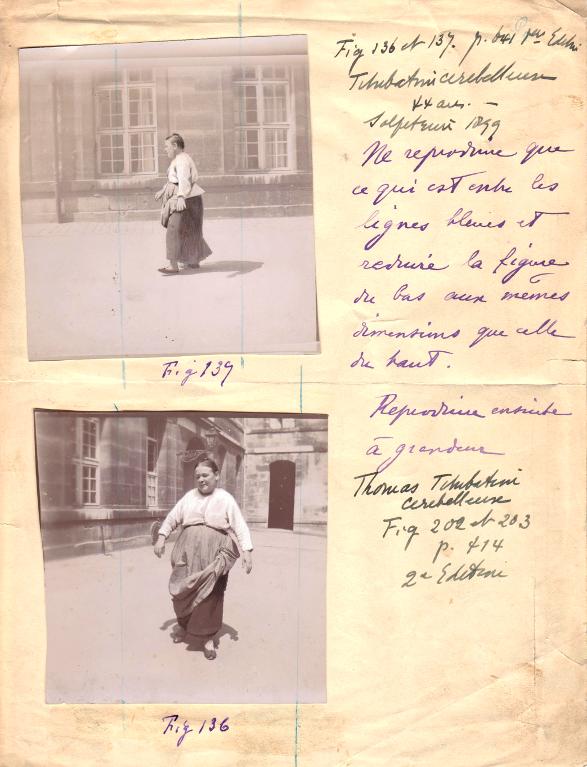 Fig 136 et 137. p. 641 1ère Editi
Titubation cerebelleuse
44 ans. —
Salpetrière 1899
Ne reproduire que
ce qui est entre les
lignes bleues et
reduire la figure
du bas aux mêmes
dimensions que celle
du haut.
Fig 137
Reproduire ensuite
à grandeur
Thomas Titubation
cerebelleuse
Fig 202 et 203
p. 414
2e Edition
Fig 136